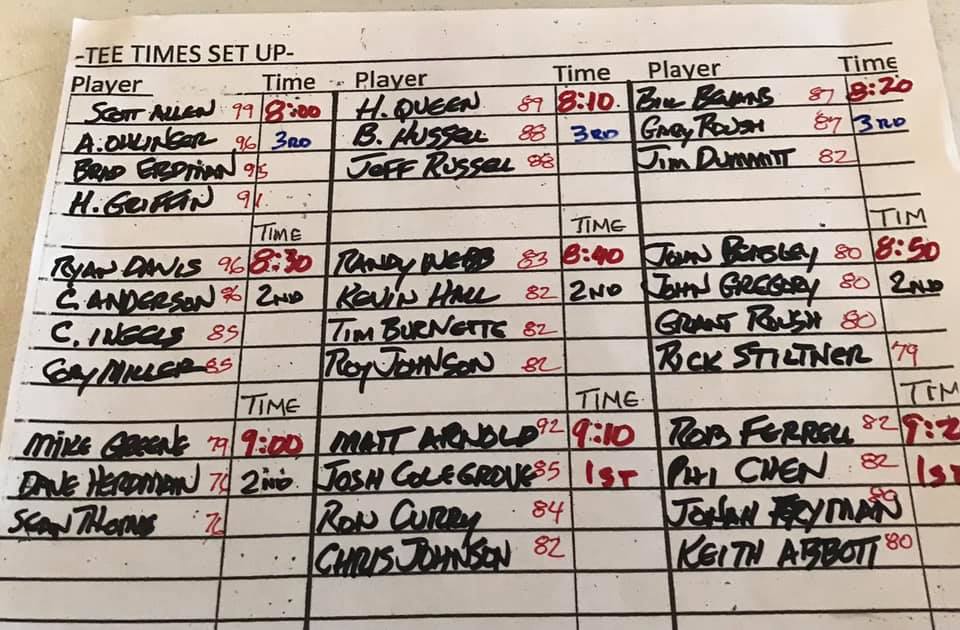 -TEE TIMES SET UP-
Player Time Player Time Player Time
SCOTT ALLEN 99 8:00 H. QUEEN 89 8:10 BILL BEVANS 87 8:20
A. OHLINGER 96 3RD B. HUSSELL 88 3RD GARY ROUSH 87 3RD
BRAD ERDMAN 95 JEFF RUSSELL 88 JIM DUMMITT 82
H. GRIFFIN 91
TIME TIME TIM
RYAN DAVIS 96 8:30 RANDY WEBB 83 8:40 JOHN BEASLEY 80 8:50
C. ANDERSON 86 2ND KEVIN HALL 82 2ND JOHN GREGORY 80 2ND
C. INGELS 85 TIM BURNETTE 82 GRANT ROUSH 80
CORY MILLER 85 ROY JOHNSON 82 RICK STILTNER 79
TIME TIME TIM
MIKE GREENE 79 9:00 MATT ARNOLD 92 9:10 ROB FERRELL 82 9:2
DAVE HERDMAN 76 2ND JOSH COLEGROVE 85 1ST PHI CHEN 82 1ST
SEAN THOMAS 76 RON CURRY 84 JONAH FRYMAN 80
CHRIS JOHNSON 82 KEITH ABBOTT 80